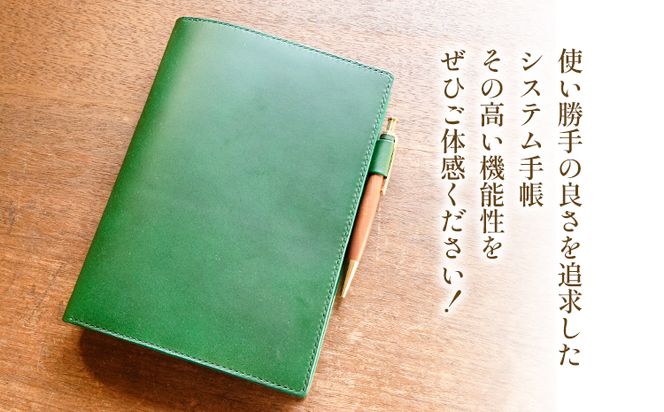 使い勝手の良さを追求した
システム手帳
その高い機能性を
ぜひご体感ください!